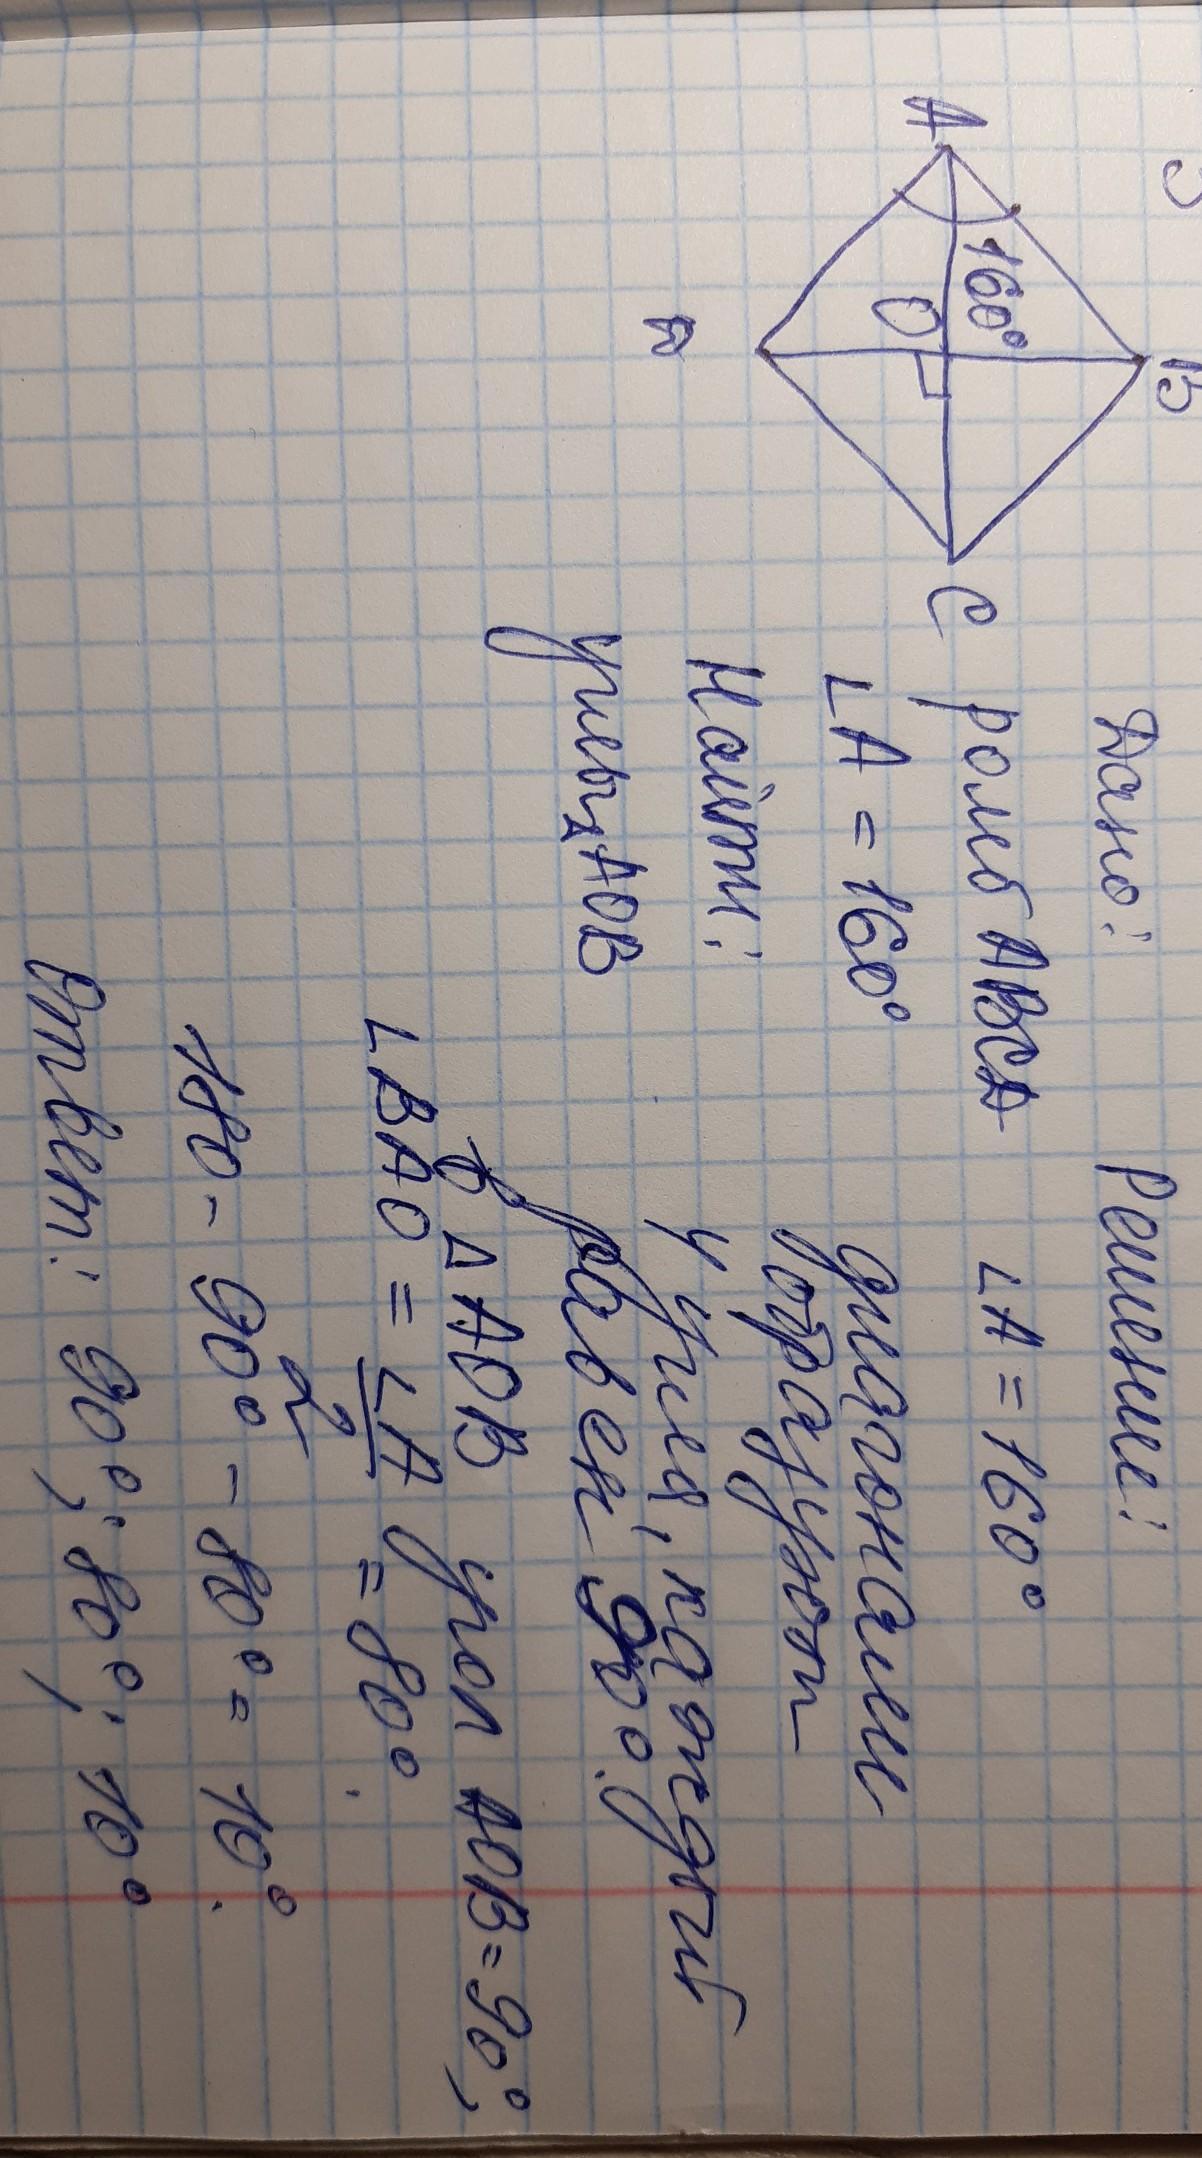 A
B
C
D
O
160°
Дано:
ромб ABCD
∠A = 160°
Найти:
углы △AOB
Решение:
∠A = 160°
диагонали
образуют
4 угла, каждый
равен 90°.
В △AOB угол AOB = 90°,
∠BAO = ∠A/2 = 80°.
180 - 90° - 80° = 10°.
Ответ: 90°; 80°; 10°